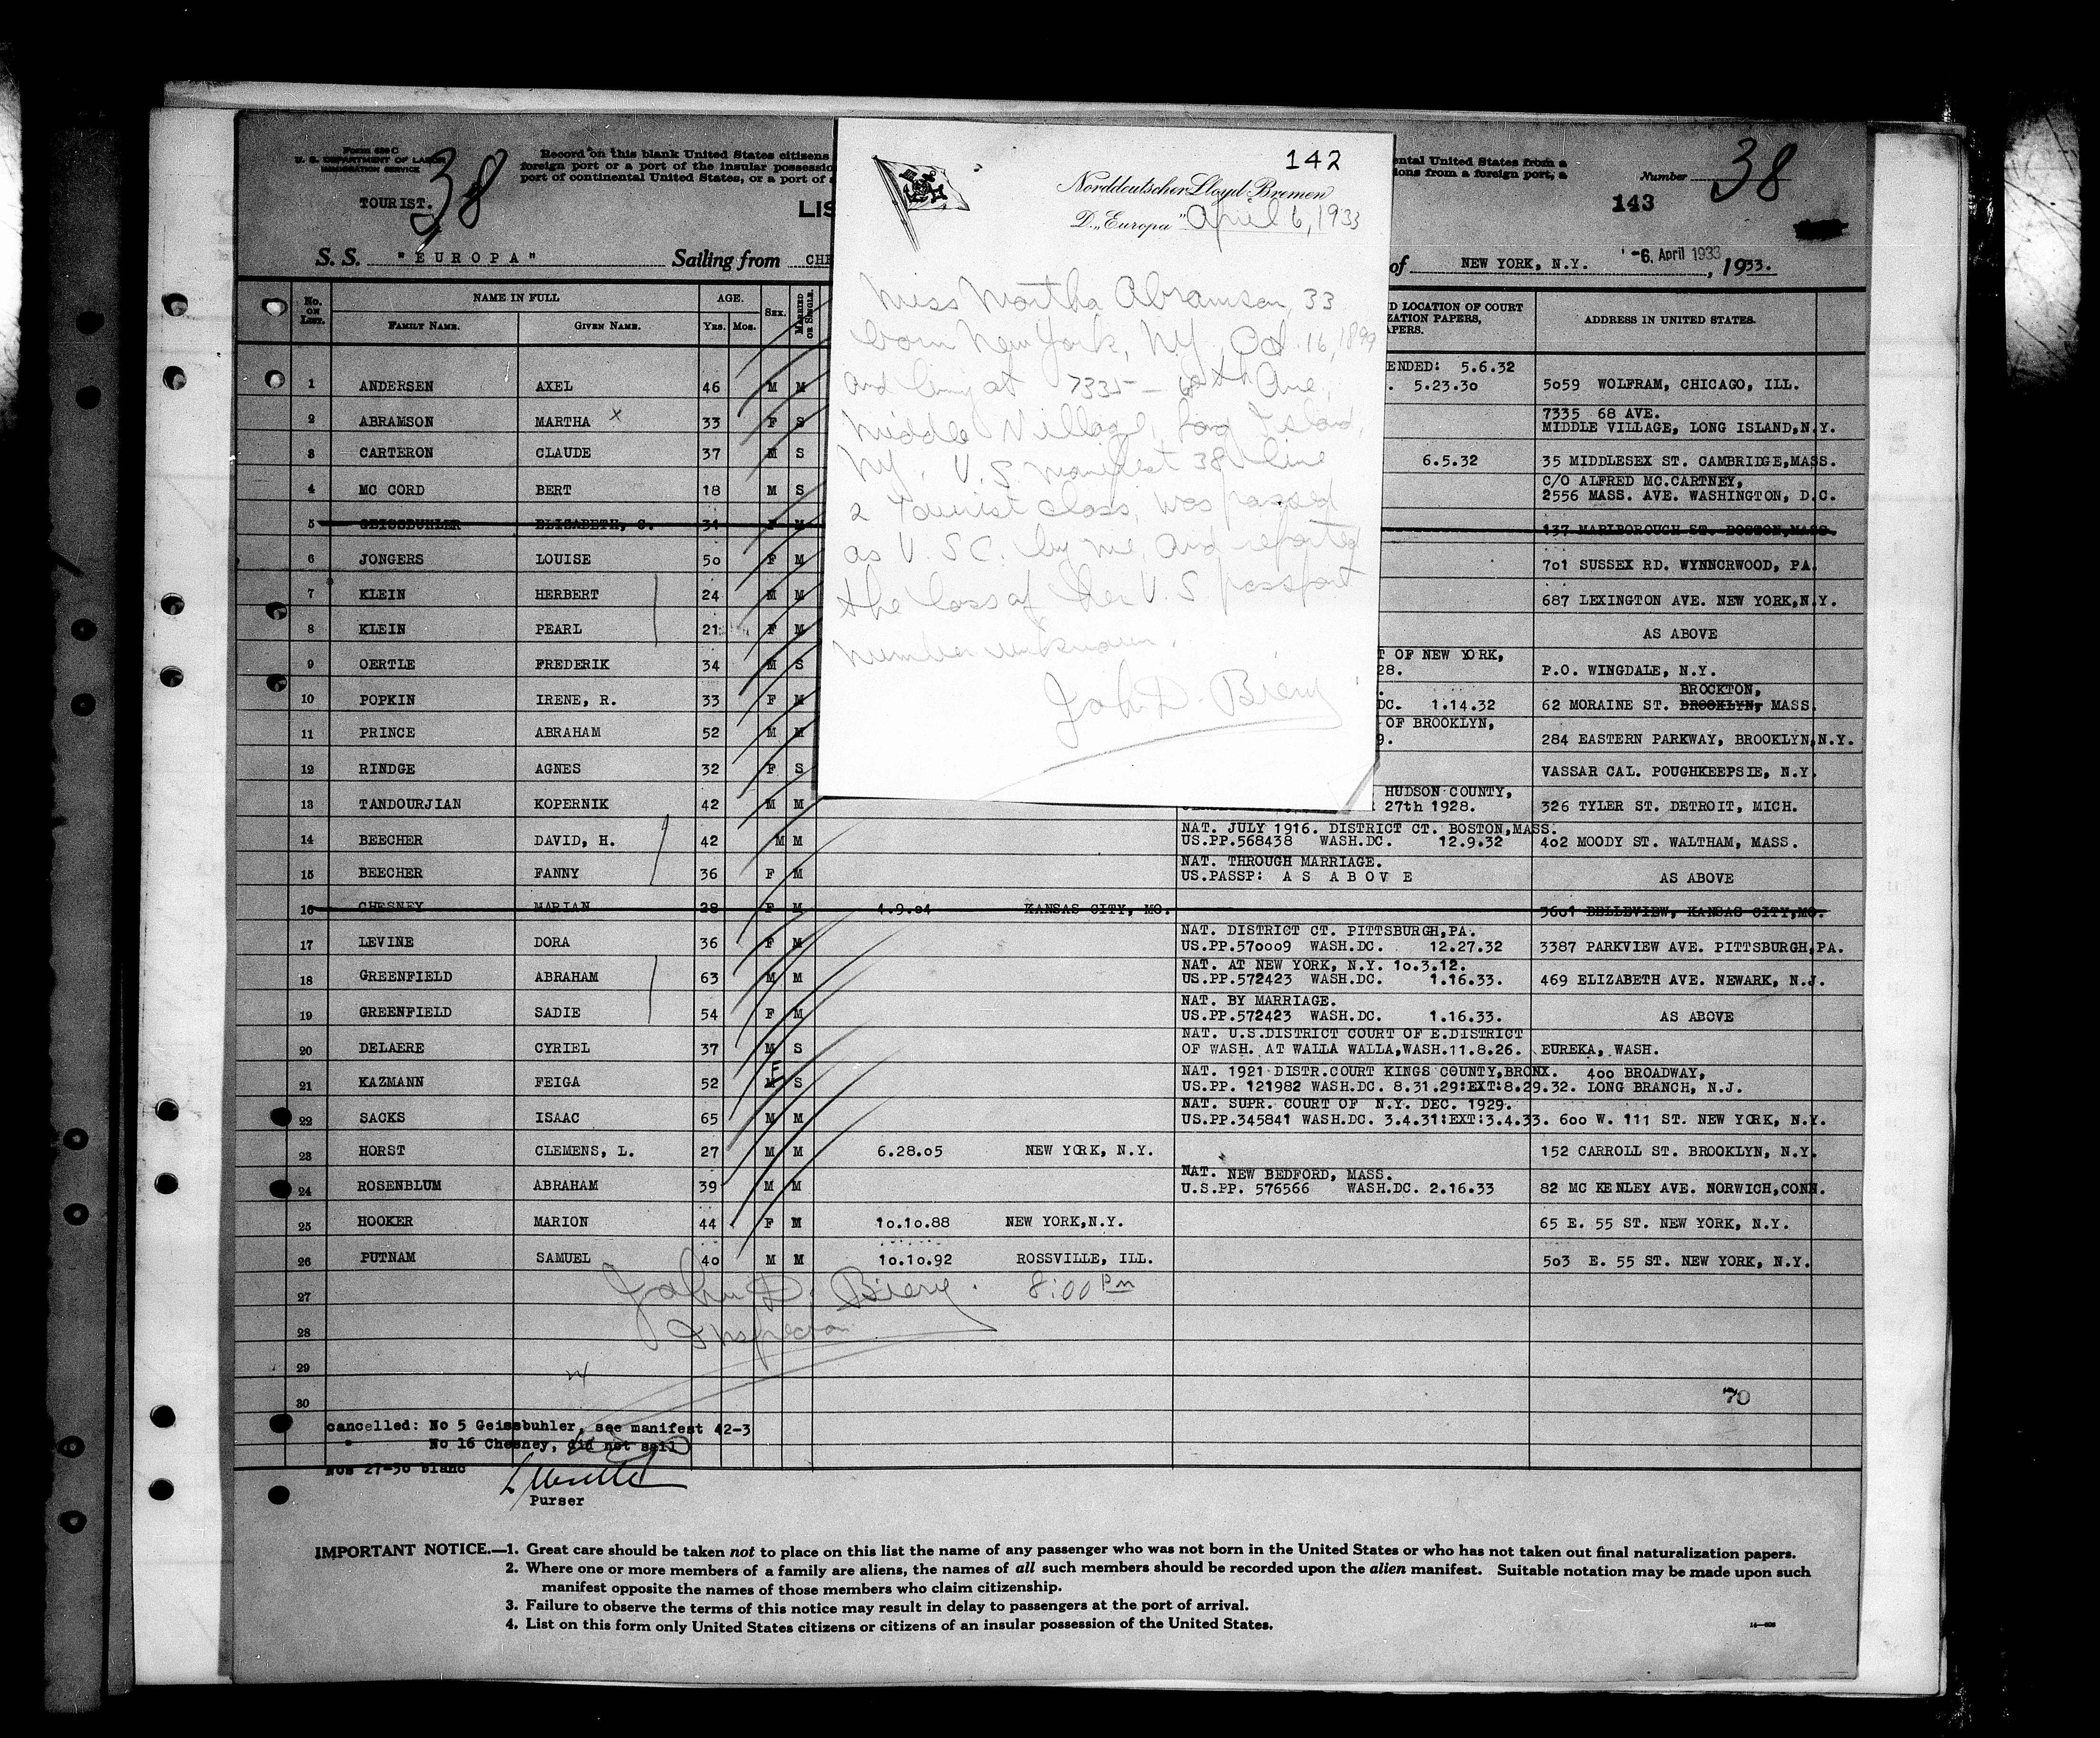 Form 630 C
U. S. DEPARTMENT OF LABOR
IMMIGRATION SERVICE
TOURIST.
38
Record on this blank United States citizens
foreign port or a port of the insular possessio
port of continental United States, or a port of a
LIS
ental United States from a
ions from a foreign port, a
Number 38
143
S. S. "EUROPA" Sailing from CHE
of NEW YORK, N.Y. -6. April 1933, 1933.
142
Norddeutscher Lloyd Bremen
D. „Europa" April 6, 1933
Miss Martha Abramson, 33
born New York, N.Y., Oct. 16, 1899
and living at 7335 – 68th Ave,
Middle Village, Long Island,
N.Y. U.S manifest 38 line
2 Tourist class, was passed
as U.S.C. by me, and reported
the loss of her U.S. passport
number unknown.
John D. Biery
No. ON LIST. NAME IN FULL AGE. SEX. MARRIED OR SINGLE. D LOCATION OF COURT ADDRESS IN UNITED STATES.
FAMILY NAME. GIVEN NAME. YRS. MOS. ZATION PAPERS,
APERS.
ENDED: 5.6.32
1 ANDERSEN AXEL 46 M M . 5.23.30 5059 WOLFRAM, CHICAGO, ILL.
7335 68 AVE.
2 ABRAMSON MARTHA x 33 F S MIDDLE VILLAGE, LONG ISLAND,N.Y.
3 CARTERON CLAUDE 37 M S 6.5.32 35 MIDDLESEX ST. CAMBRIDGE,MASS.
C/O ALFRED MC.CARTNEY,
4 MC CORD BERT 18 M S 2556 MASS. AVE. WASHINGTON, D.C.
5 GEISSBUHLER ELIZABETH, C. 31 F M 137 MARLBOROUGH ST. BOSTON,MASS.
6 JONGERS LOUISE 50 F M 701 SUSSEX RD. WYNNORWOOD, PA.
7 KLEIN HERBERT 24 M M 687 LEXINGTON AVE. NEW YORK,N.Y.
8 KLEIN PEARL 21 F M AS ABOVE
T OF NEW YORK,
9 OERTLE FREDERIK 34 M S 28. P.O. WINGDALE, N.Y.
BROCKTON,
10 POPKIN IRENE, R. 33 F M DC. 1.14.32 62 MORAINE ST. BROOKLYN, MASS.
OF BROOKLYN,
11 PRINCE ABRAHAM 52 M M 9. 284 EASTERN PARKWAY, BROOKLYN,N.Y.
12 RINDGE AGNES 32 F S VASSAR CAL. POUGHKEEPSIE, N.Y.
HUDSON COUNTY,
13 TANDOURJIAN KOPERNIK 42 M M 27th 1928. 326 TYLER ST. DETROIT, MICH.
NAT. JULY 1916. DISTRICT CT. BOSTON,MASS.
14 BEECHER DAVID, H. 42 M M US.PP.568438 WASH.DC. 12.9.32 402 MOODY ST. WALTHAM, MASS.
NAT. THROUGH MARRIAGE.
15 BEECHER FANNY 36 F M US.PASSP: AS ABOVE AS ABOVE
16 CHESNEY MARIAN 28 F M 4.9.04 KANSAS CITY, MO. 3601 BELLEVIEW, KANSAS CITY,MO.
NAT. DISTRICT CT. PITTSBURGH,PA.
17 LEVINE DORA 36 F M US.PP.570009 WASH.DC. 12.27.32 3387 PARKVIEW AVE. PITTSBURGH,PA.
NAT. AT NEW YORK, N.Y. 10.3.12.
18 GREENFIELD ABRAHAM 63 M M US.PP.572423 WASH.DC. 1.16.33. 469 ELIZABETH AVE. NEWARK, N.J.
NAT. BY MARRIAGE.
19 GREENFIELD SADIE 54 F M US.PP.572423 WASH.DC. 1.16.33. AS ABOVE
NAT. U.S.DISTRICT COURT OF E.DISTRICT
20 DELAERE CYRIEL 37 M S OF WASH. AT WALLA WALLA,WASH.11.8.26. EUREKA, WASH.
F NAT. 1921 DISTR.COURT KINGS COUNTY,BRONX. 400 BROADWAY,
21 KAZMANN FEIGA 52 M S US.PP. 121982 WASH.DC. 8.31.29:EXT:8.29.32. LONG BRANCH, N.J.
NAT. SUPR. COURT OF N.Y. DEC. 1929.
22 SACKS ISAAC 65 M M US.PP.345841 WASH.DC. 3.4.31:EXT:3.4.33. 600 W. 111 ST. NEW YORK, N.Y.
23 HORST CLEMENS, L. 27 M M 6.28.05 NEW YORK, N.Y. 152 CARROLL ST. BROOKLYN, N.Y.
NAT. NEW BEDFORD, MASS.
24 ROSENBLUM ABRAHAM 39 M M U.S.PP. 576566 WASH.DC. 2.16.33 82 MC KENLEY AVE. NORWICH,CONN.
25 HOOKER MARION 44 F M 10.10.88 NEW YORK,N.Y. 65 E. 55 ST. NEW YORK, N.Y.
26 PUTNAM SAMUEL 40 M M 10.10.92 ROSSVILLE, ILL. 503 E. 55 ST. NEW YORK, N.Y.
27 John D. Biery. 8:00 PM
28 Inspector
29
30 70
cancelled: No 5 Geissbuhler, see manifest 42-3
No 16 Chesney, did not sail
Nos 27-30 blanc
Purser
IMPORTANT NOTICE.—1. Great care should be taken not to place on this list the name of any passenger who was not born in the United States or who has not taken out final naturalization papers.
2. Where one or more members of a family are aliens, the names of all such members should be recorded upon the alien manifest. Suitable notation may be made upon such
manifest opposite the names of those members who claim citizenship.
3. Failure to observe the terms of this notice may result in delay to passengers at the port of arrival.
4. List on this form only United States citizens or citizens of an insular possession of the United States.